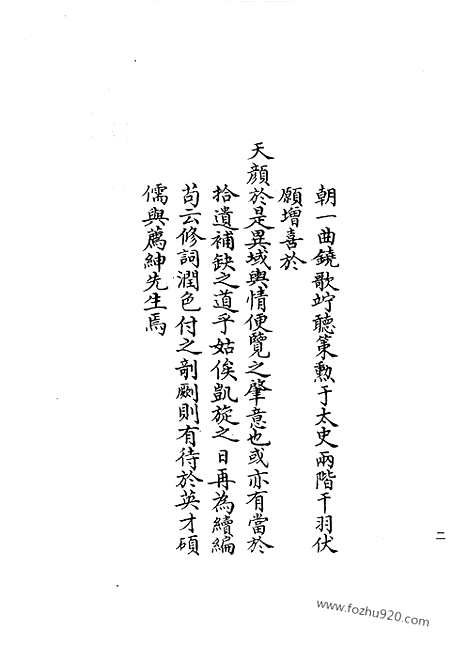 朝一曲鐃歌竚聽策勲于太史兩階干羽伏
願增喜於
天顔於是異域輿情便覽之肇意也或亦有當於
拾遺補缺之道乎姑俟凱旋之日再為續編
苟云修詞潤色付之剞劂則有待於英才碩
儒與薦紳先生焉
二
www.fozhu920.com